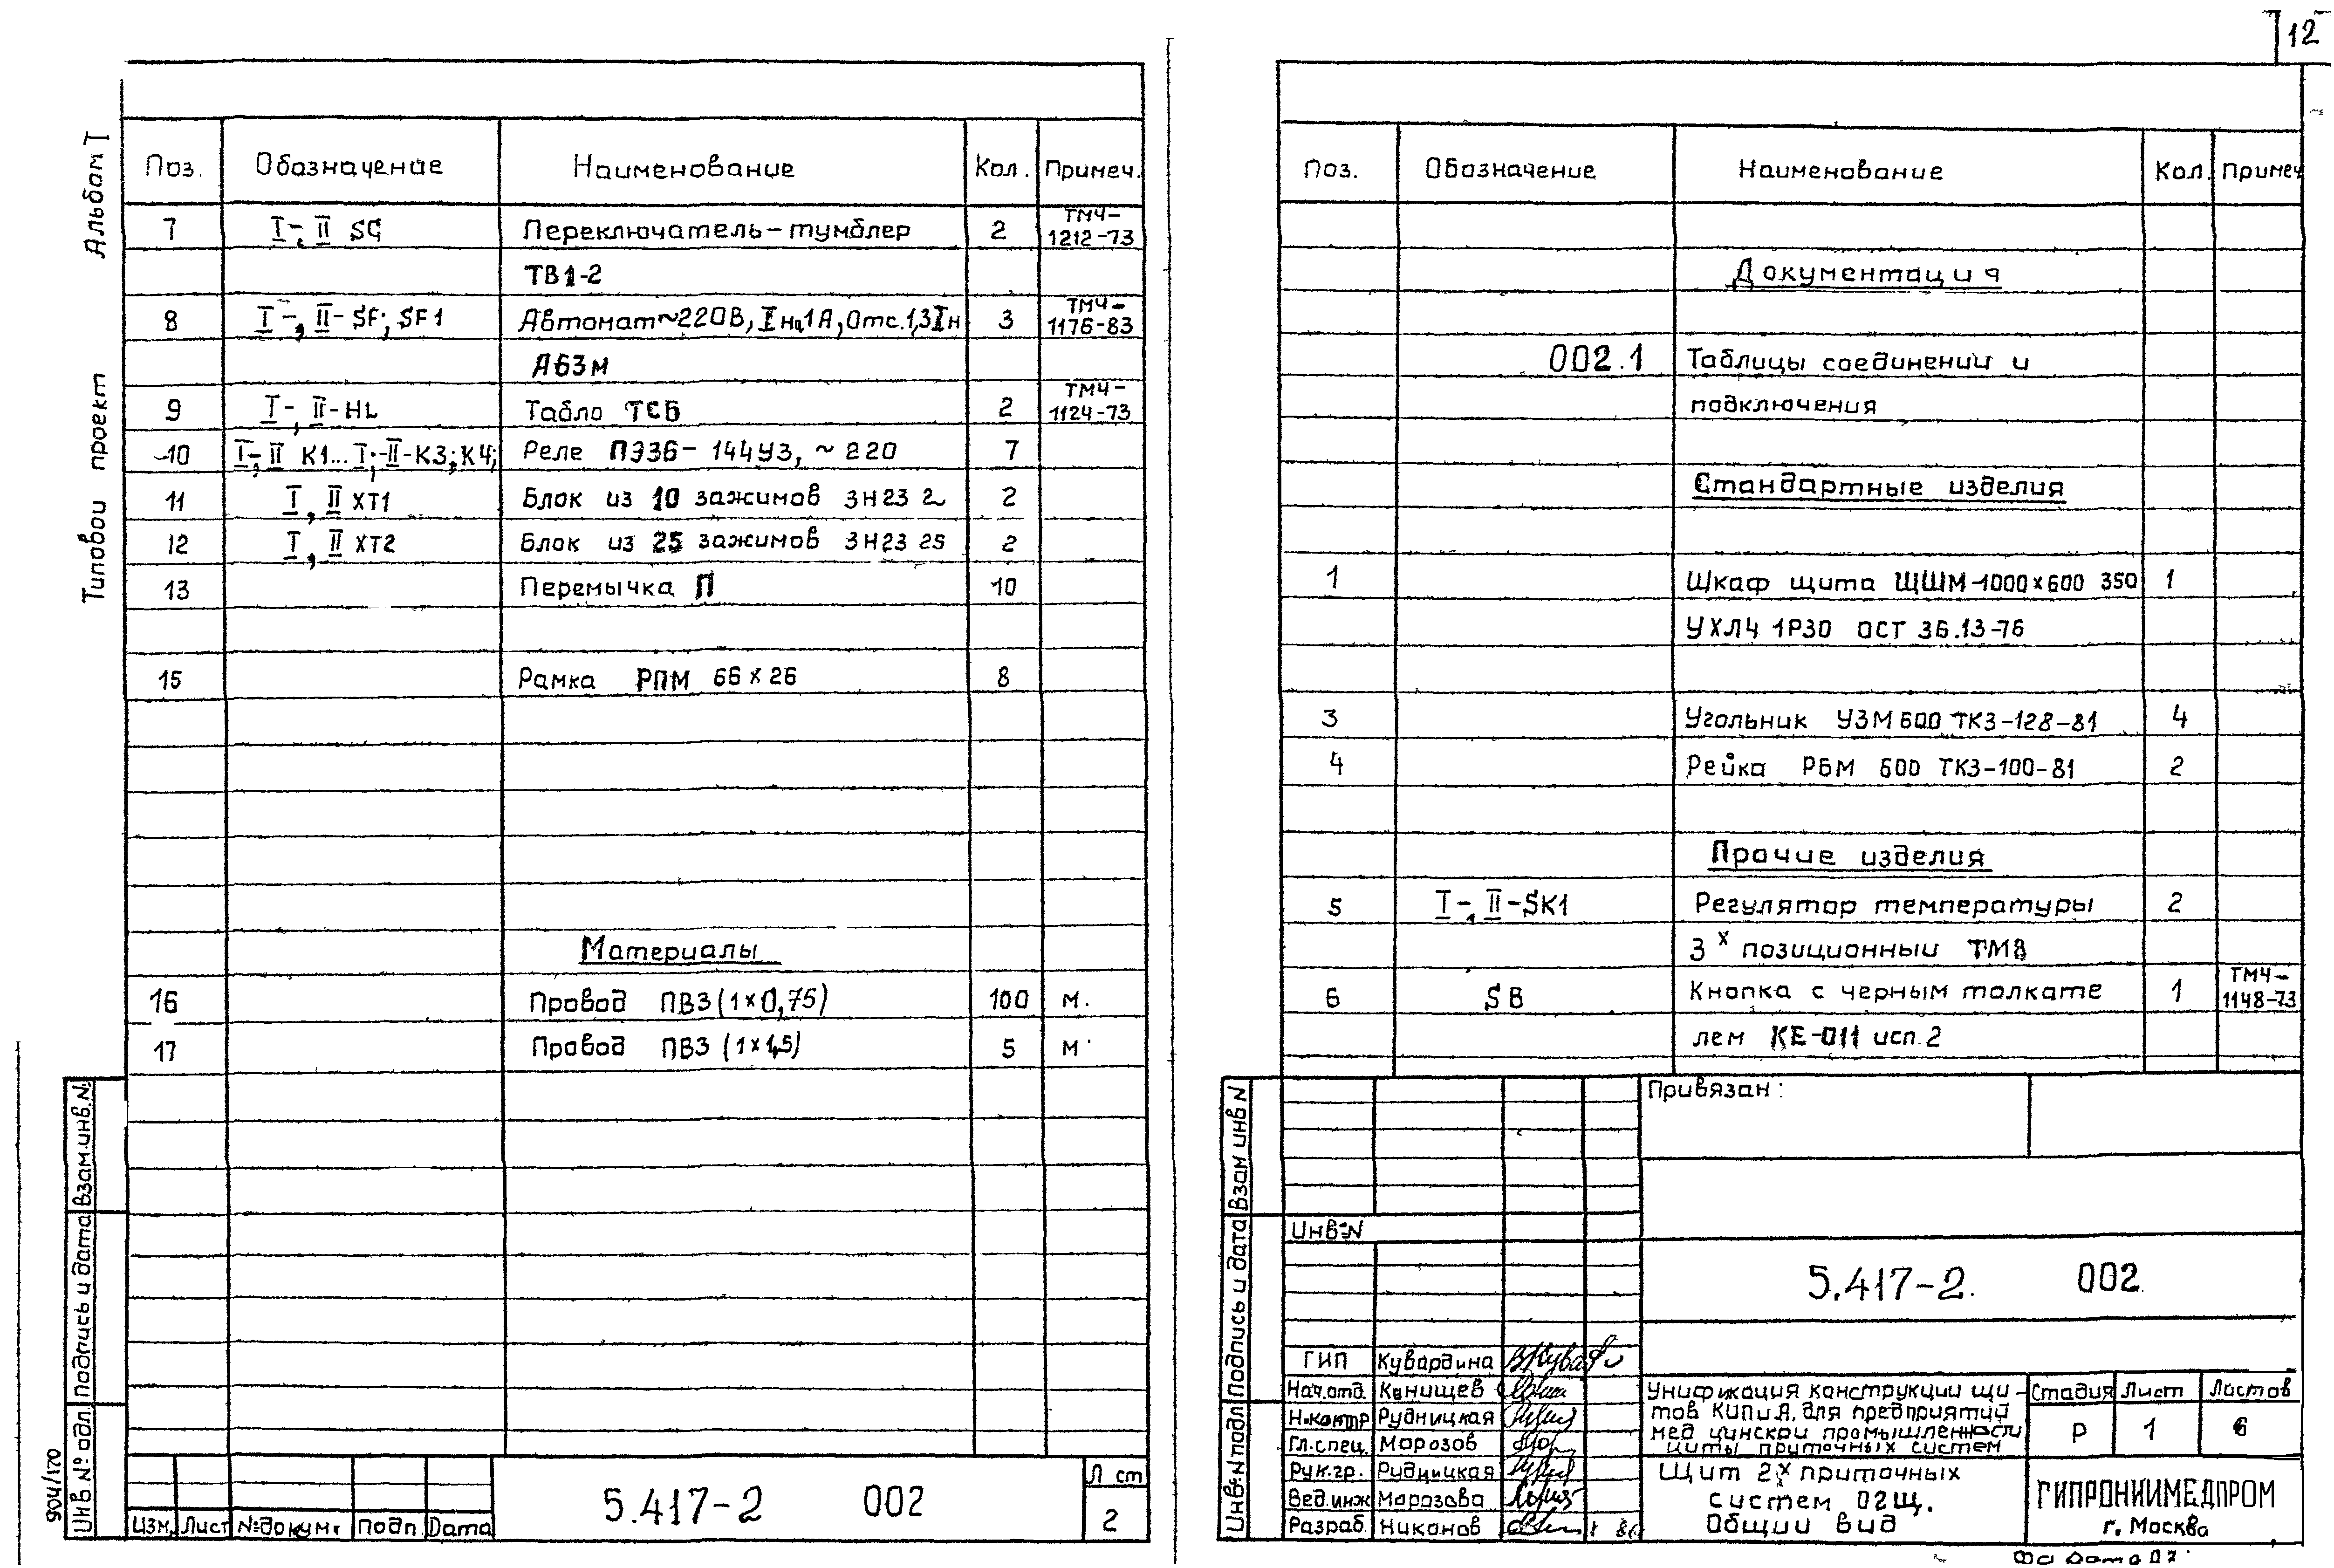 12
Альбом I
Типовой проект
Поз. Обозначение Наименование Кол. Примеч.
7 I-, II SC Переключатель-тумблер 2 ТМЧ-1212-73
ТВ1-2
8 I-, II-SF; SF1 Автомат~220В, Iн=1А, Отс.1,3Iн 3 ТМЧ-1176-83
А63м
9 I-, II-HL Табло ТСБ 2 ТМЧ-1124-73
10 I-, II К1...I-,-II-К3; К4; Реле ПЭ36-144У3, ~220 7
11 I, II ХТ1 Блок из 10 зажимов ЗН23 2
12 I, II ХТ2 Блок из 25 зажимов ЗН23 25 2
13 Перемычка П 10
15 Рамка РПМ 66х26 8
Материалы
16 Провод ПВ3 (1х0,75) 100 м.
17 Провод ПВ3 (1х1,5) 5 м
Взам.инв.N
Подпись и дата
904/170
Изм. Лист №докум. Подп. Дата
5.417-2 002
Л ст
2
Поз. Обозначение Наименование Кол. Примеч
Документация
002.1 Таблицы соединений и
подключения
Стандартные изделия
1 Шкаф щита ЩШМ-1000х600 350 1
УХЛ4 1Р30 ОСТ 36.13-76
3 Угольник УЗМ600 ТК3-128-81 4
4 Рейка РБМ 600 ТК3-100-81 2
Прочие изделия
5 I-, II-SK1 Регулятор температуры 2
3х позиционный ТМ8
6 SB Кнопка с черным толкате 1 ТМЧ-1148-73
лем КЕ-011 исп.2
Взам инв N
Подпись и дата
Инв.N подл
Привязан:
Инв.N
5.417-2. 002.
ГИП Кувардина
Нач.отд. Канищев
Н.контр Рудницкая
Гл.спец. Морозов
Рук.гр. Рудницкая
Вед.инж Морозова
Разраб. Никонов
Унификация конструкции щи-
тов КИПиА, для предприятий
мед цинской промышленности
щиты приточных систем
Стадия Лист Листов
Р 1 6
Щит 2х приточных
систем 02Щ.
Общий вид
ГИПРОНИИМЕДПРОМ
г. Москва